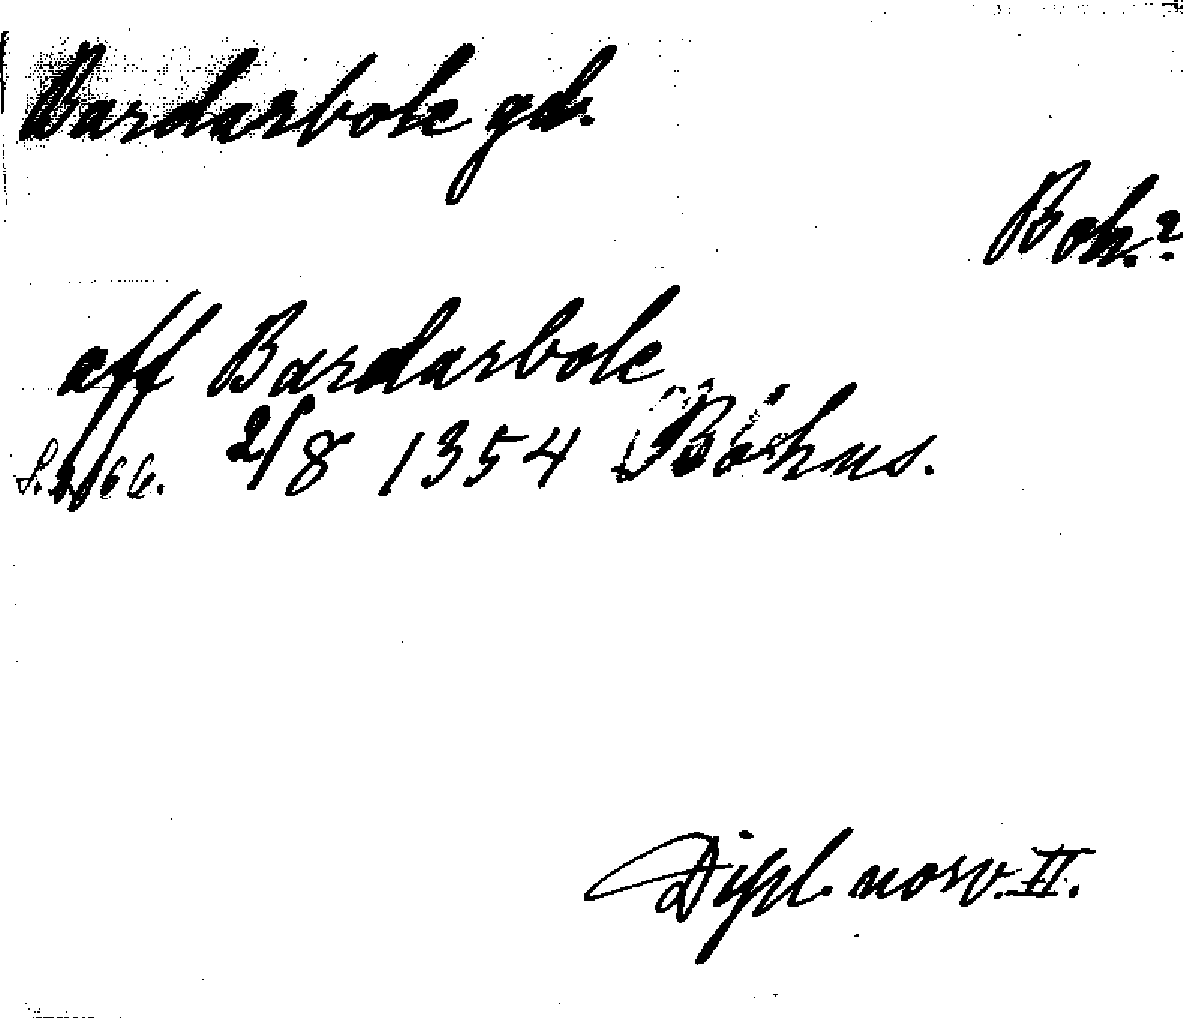 Bardarbole gd.
Boh.?
aff Bardarbole
2/8 1354 Bohus.
Dipl. norv. II.